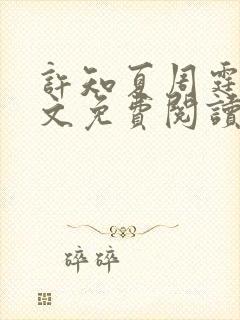 許知夏周霆
文免費閱讀
碎碎